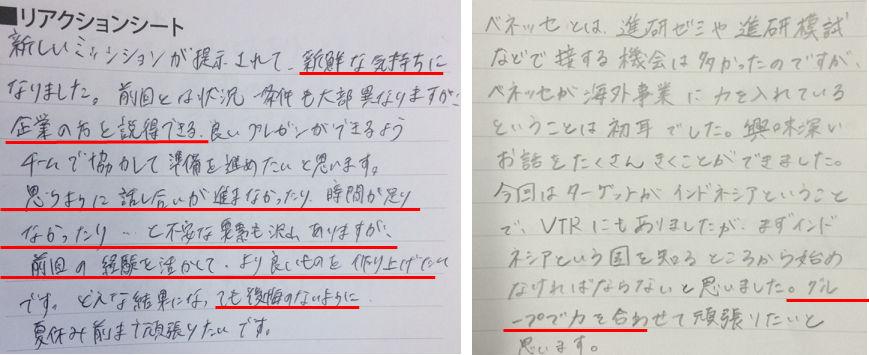 ■リアクションシート
新しいミッションが提示されて、新鮮な気持ちに
なりました。前回とは状況・条件も大部異なりますが、
企業の方を説得できる、良いプレゼンができるよう
チームで協力して準備を進めたいと思います。
思うように話し合いが進まなかったり、時間が足り
なかったり…と不安な要素も沢山ありますが、
前回の経験を活かして、より良いものを作り上げたい
です。どんな結果になっても後悔のないように
夏休み前まで頑張りたいです。
ベネッセとは、進研ゼミや進研模試
などで接する機会は多かったのですが、
ベネッセが海外事業に力を入れている
ということは初耳でした。興味深い
お話をたくさんきくことができました。
今回はターゲットがインドネシアということ
で、VTRにもありましたが、まずインド
ネシアという国を知るところから始め
なければならないと思いました。グル
ープで力を合わせて頑張りたいと
思います。